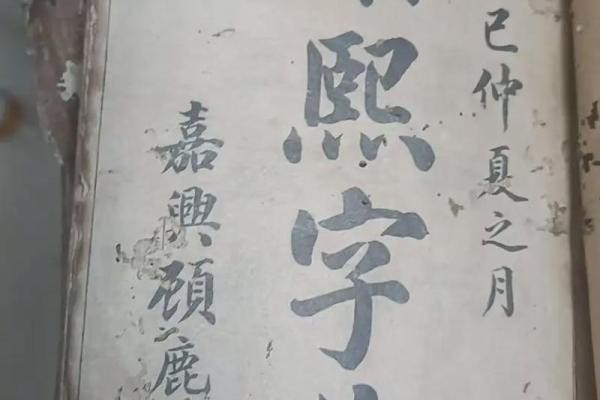 巳仲夏之月
熙字
嘉興顧鹿